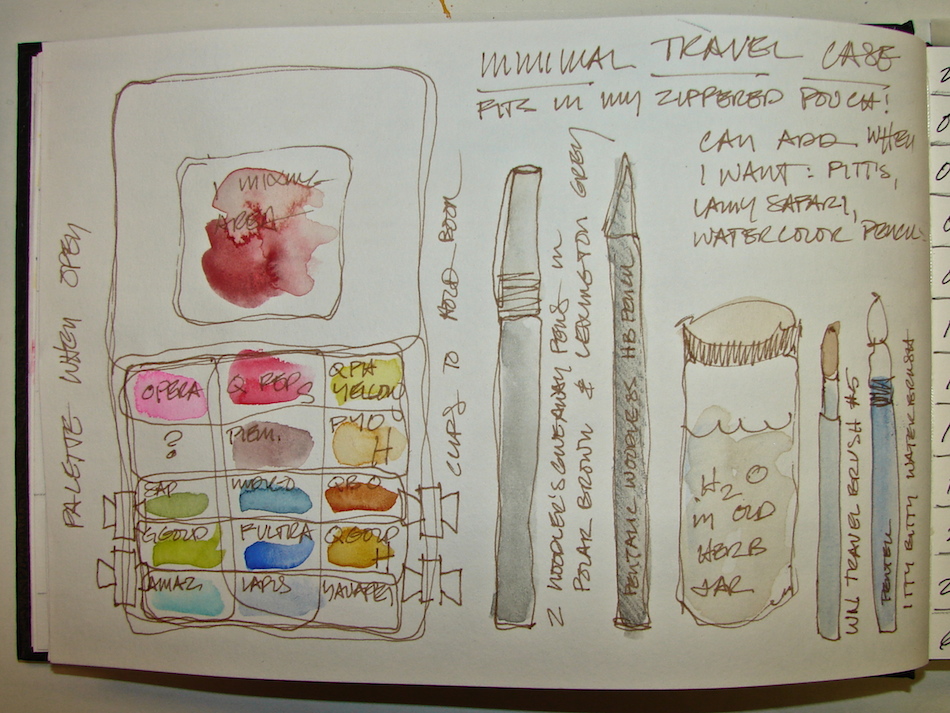 MINIMAL TRAVEL CASE
FITS IN MY ZIPPERED POUCH!
CAN ADD WHEN
I WANT: PITTS,
LAMY SAFARI,
WATERCOLOR PENCIL
PALETTE WHEN OPEN
MIXING
AREA
OPERA
Q RED
QPH
YELLOW
?
PIEM.
H
SAP
INDIGO
QBO
G GOLD
FULTRA
Q GOLD
H
AMAZ
LAPIS
CLIPS TO HOLD BOOK
2 NOODLER'S GIVEAWAY PENS IN
POLAR BROWN & LEXINGTON GREY
PENTALIC WOODLESS HB PENCIL
H2O
IN OLD
HERB
JAR
WN TRAVEL BRUSH #5
PENTEL
ITTY BITTY WATERBRUSH